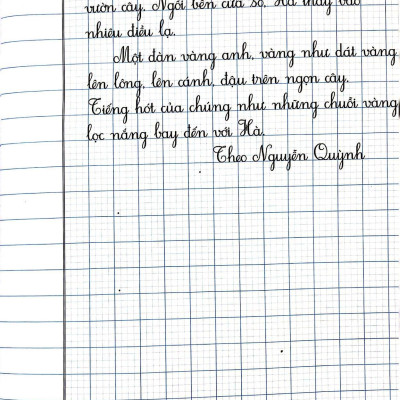 vườn cây. Ngồi bên cửa sổ, Hà thấy bao
nhiêu điều lạ.
Một đàn vàng anh, vàng như dát vàng
lên lông, lên cánh, đậu trên ngọn cây.
Tiếng hót của chúng như những chuỗi vàng
lọc nắng bay đến với Hà.
Theo Nguyễn Quỳnh